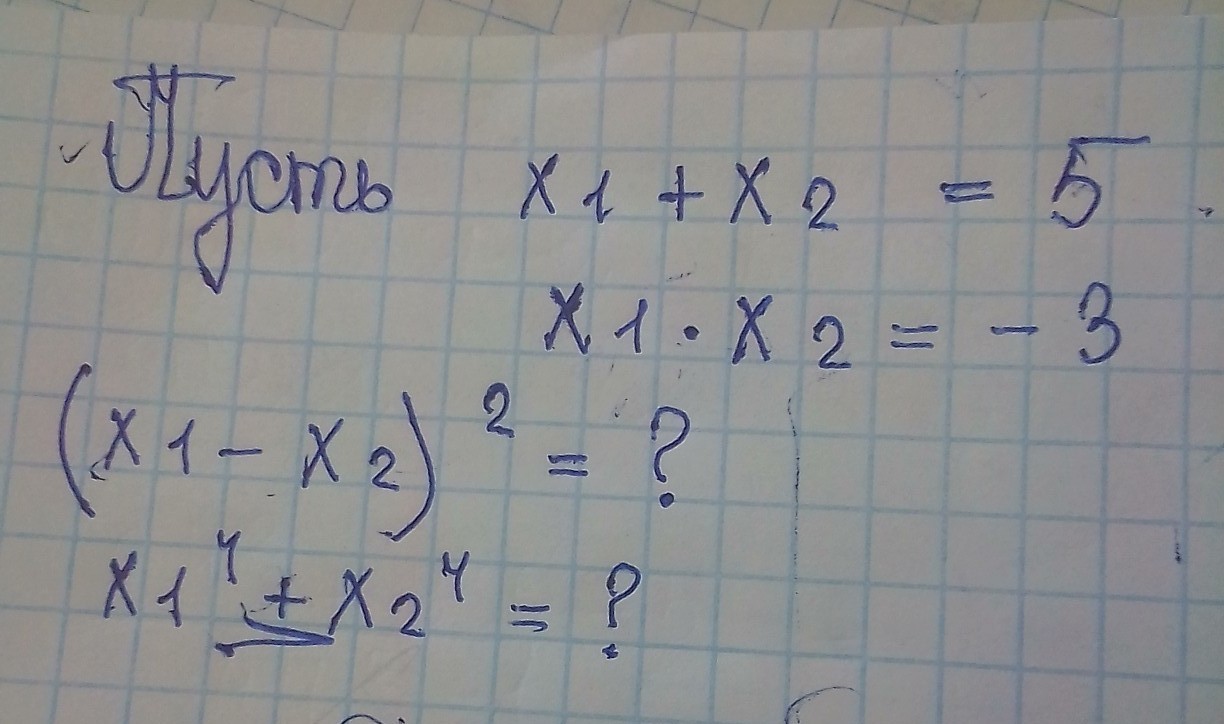 Пусть x1 + x2 = 5
x1 · x2 = - 3
(x1 - x2)² = ?
x1⁴ + x2⁴ = ?